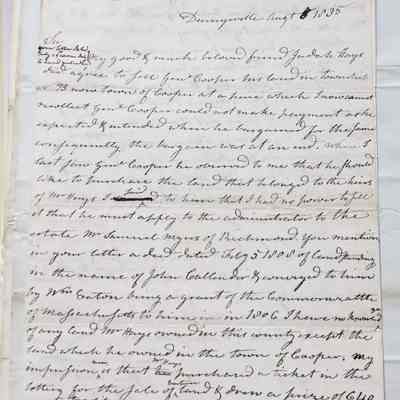 Dennysville Augt 6 1835
Sir
My good & much beloved friend Judah Hays
did agree to sell Genl Cooper his land in township
No 23 now town of Cooper at a price which I now cannot
recollect Genl Cooper could not make payment as he
expected & intended when he bargained for the same
consequently the bargain was at an end. When I
last saw Genl Cooper he observed to me that he should
like to purchase the land that belonged to the heirs
of Mr Hays I said to him that I had no power to sell
it that he must apply to the administrator to the
estate Mr Samuel Myers of Richmond. You mention
in your letter a deed dated Feby 5 1808 of land
in the name of John Callender & conveyed to him
by Wm Eaton being a grant of the Commonwealth
of Massachusetts to him in 1806 I have no knowledge
of any land Mr Hays owned in this county except the
land which he owned in the town of Cooper, my
impression is that he purchased a ticket in the
lottery for the sale of land & drew a prize of 640